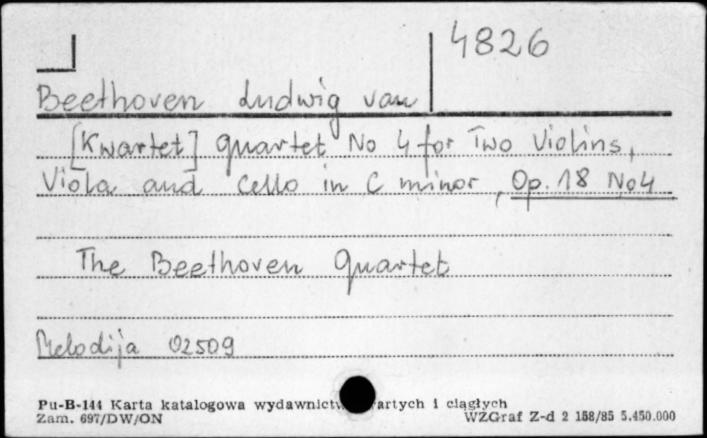 4826
Beethoven Ludwig van
[Kwartet] Quartet No 4 for Two Violins,
Viola and Cello in C minor, Op. 18 No 4
The Beethoven Quartet
Melodija 02509
Pu-B-144 Karta katalogowa wydawnictw artych i ciągłych
Zam. 697/DW/ON WZGraf Z-d 2 158/85 5.450.000